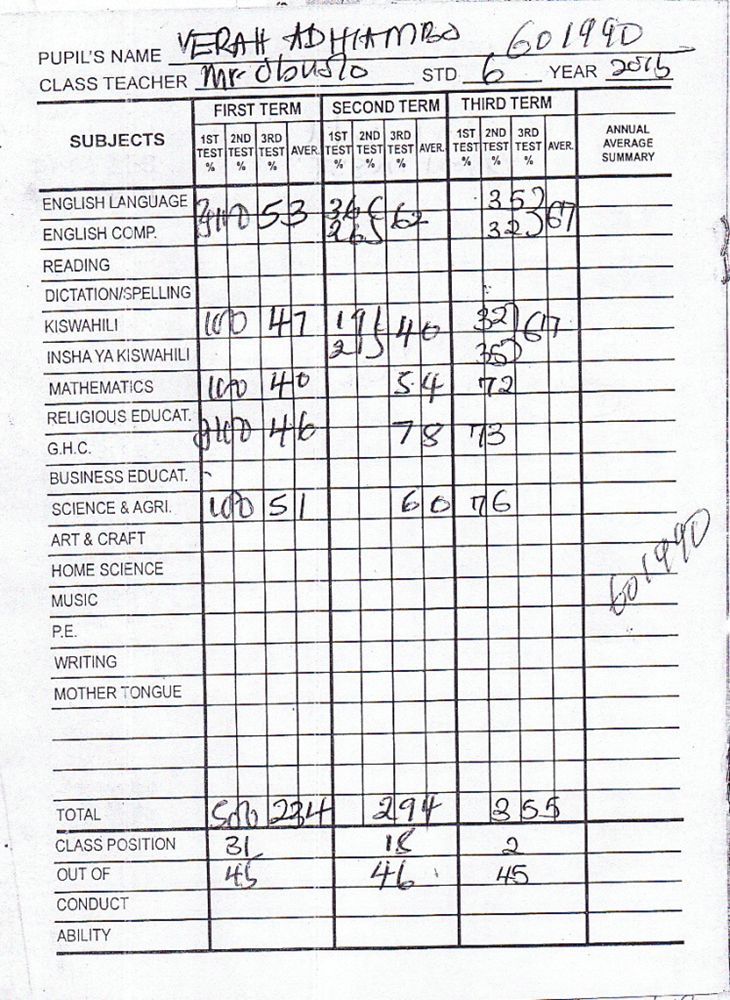 PUPIL'S NAME VERAH ADHIAMBO 601990
CLASS TEACHER Mr Obuslo STD 6 YEAR 2016
SUBJECTS FIRST TERM SECOND TERM THIRD TERM ANNUAL AVERAGE SUMMARY
1ST TEST % 2ND TEST % 3RD TEST % AVER. 1ST TEST % 2ND TEST % 3RD TEST % AVER. 1ST TEST % 2ND TEST % 3RD TEST % AVER.
ENGLISH LANGUAGE 100 53 36 62 35 67
ENGLISH COMP. 26 32
READING
DICTATION/SPELLING
KISWAHILI 100 47 19 40 32 67
INSHA YA KISWAHILI 21 35
MATHEMATICS 100 40 54 72
RELIGIOUS EDUCAT. 100 46 78 73
G.H.C.
BUSINESS EDUCAT.
SCIENCE & AGRI. 100 51 60 76
ART & CRAFT
HOME SCIENCE
601990
MUSIC
P.E.
WRITING
MOTHER TONGUE
TOTAL 500 234 294 355
CLASS POSITION 31 18 2
OUT OF 45 46 45
CONDUCT
ABILITY